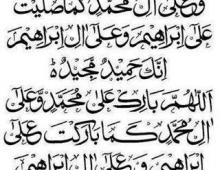 وَعَلٰى اٰلِ مُحَمَّدٍ كَمَا صَلَّيْتَ
عَلٰى اِبْرَاهِيْمَ وَعَلٰى اٰلِ اِبْرَاهِيْمَ
اِنَّكَ حَمِيْدٌ مَّجِيْدٌ
اَللّٰهُمَّ بَارِكْ عَلٰى مُحَمَّدٍ وَّعَلٰى
اٰلِ مُحَمَّدٍ كَمَا بَارَكْتَ عَلٰى
اِبْرَاهِيْمَ وَعَلٰى اٰلِ اِبْرَاهِيْمَ